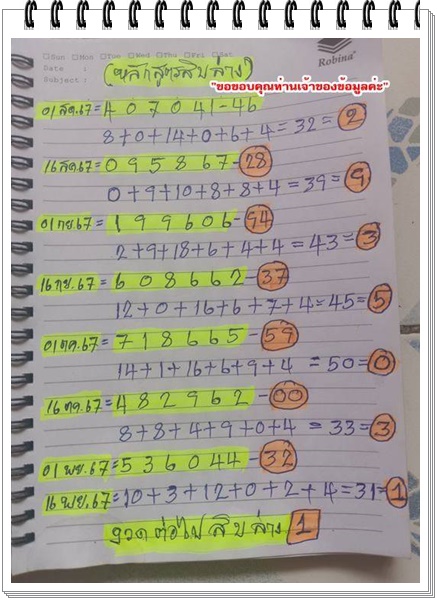 Sun Mon Tue Wed Thu Fri Sat
Date :
Subject :
Robina
"ขอขอบคุณท่านเจ้าของข้อมูลค่ะ"
01 สค.67 = 4 0 7 0 4 1 - 46
8+0+14+0+6+4 = 32 = 2
16 สค.67 = 0 9 5 8 6 7 - 28
0+9+10+8+8+4 = 39 = 9
01 กย 67 = 1 9 9 6 0 6 - 94
2+9+18+6+4+4 = 43 = 3
16 กย.67 = 6 0 8 6 6 2 - 37
12+0+16+6+7+4 = 45 = 5
01 ตค.67 = 7 1 8 6 6 5 - 59
14+1+16+6+9+4 = 50 = 0
16 ตค.67 = 4 8 2 9 6 2 - 00
8+8+4+9+0+4 = 33 = 3
01 พย.67 = 5 3 6 0 4 4 - 32
16 พย.67 = 10+3+12+0+2+4 = 31 = 1
งวดต่อไปสิบล่าง 1